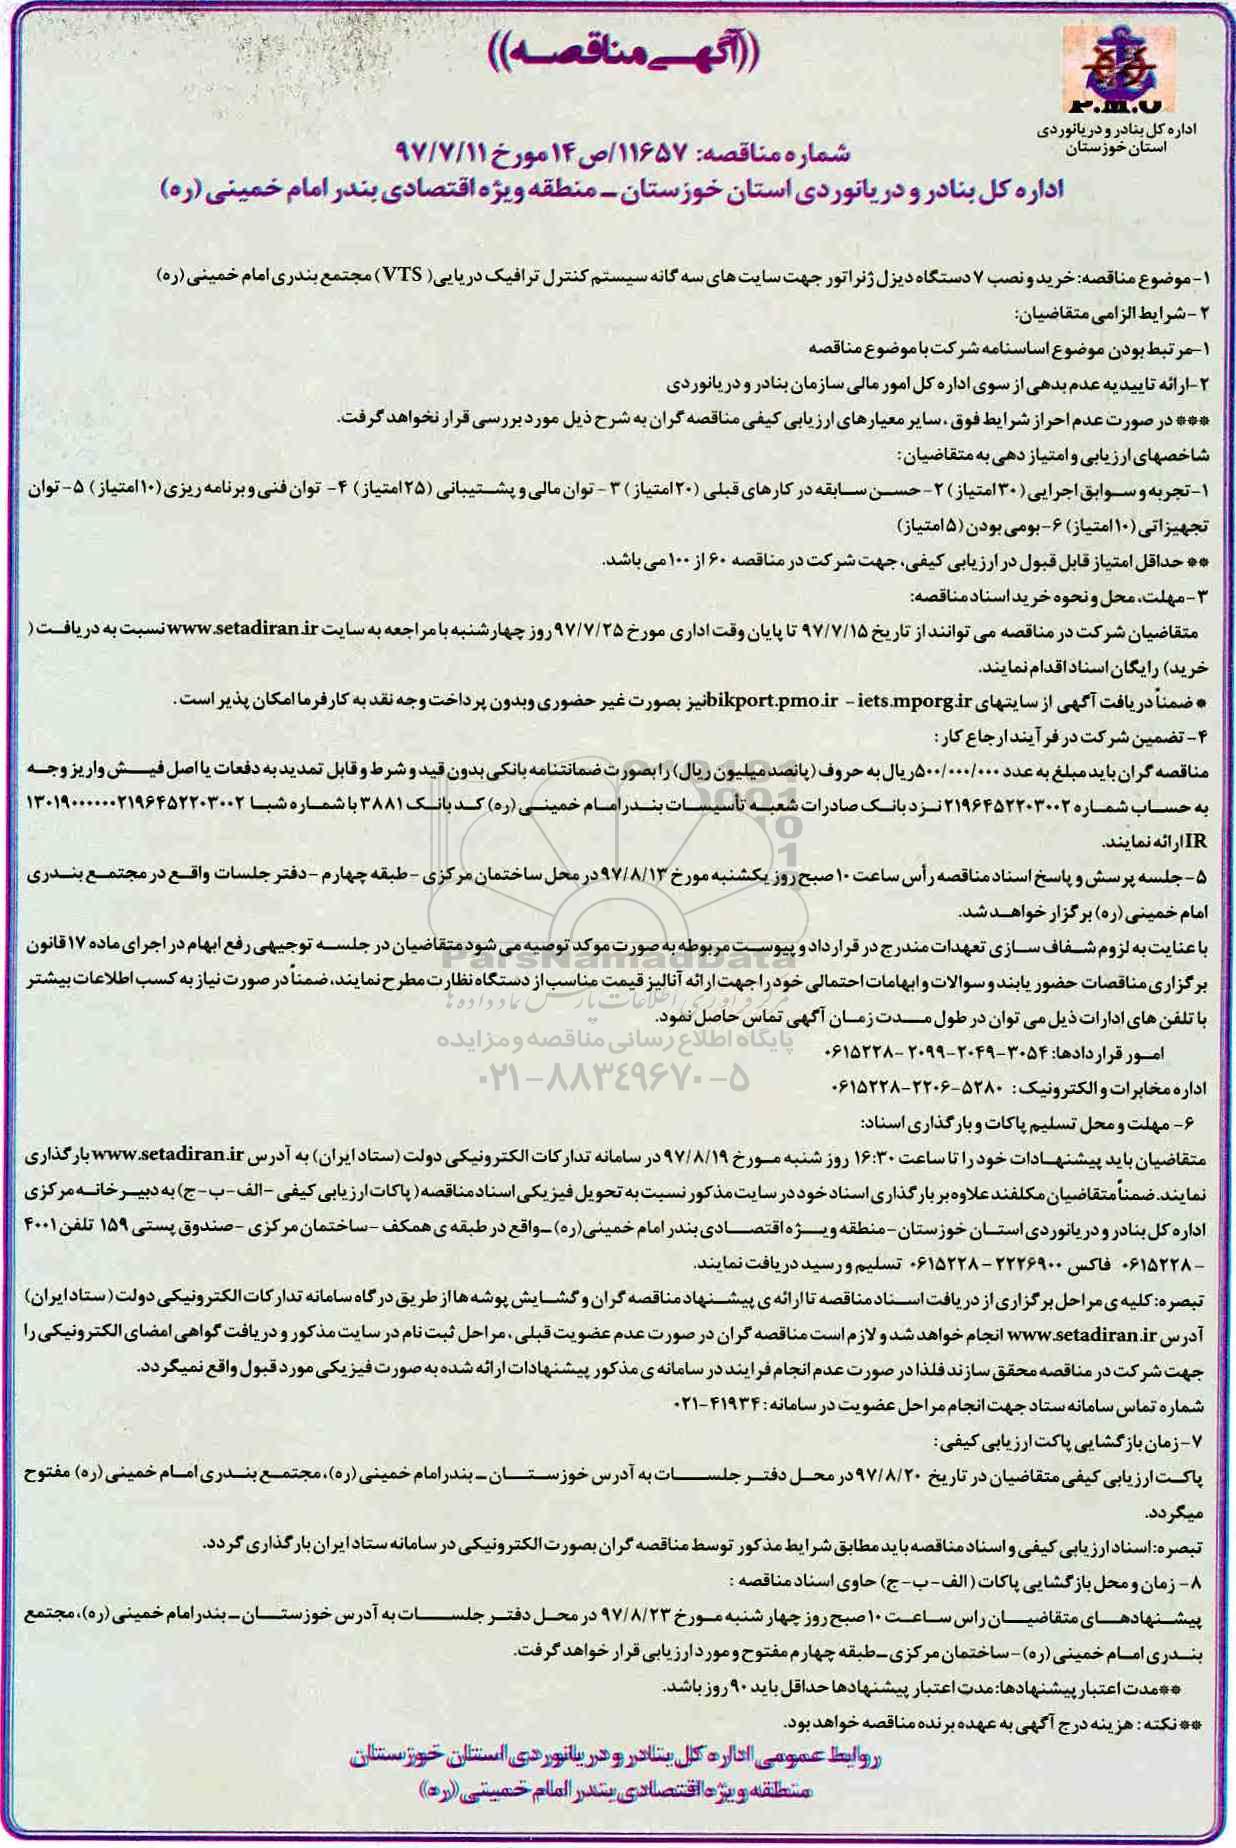 ((آگهی مناقصه))
P.M.O
اداره کل بنادر و دریانوردی
استان خوزستان
شماره مناقصه: ۱۱۶۵۷/ص۱۴ مورخ ۹۷/۷/۱۱
اداره کل بنادر و دریانوردی استان خوزستان ـ منطقه ویژه اقتصادی بندر امام خمینی (ره)
۱-موضوع مناقصه: خرید و نصب ۷ دستگاه دیزل ژنراتور جهت سایت های سه گانه سیستم کنترل ترافیک دریایی( VTS) مجتمع بندری امام خمینی (ره)
۲-شرایط الزامی متقاضیان:
۱-مرتبط بودن موضوع اساسنامه شرکت با موضوع مناقصه
۲-ارائه تاییدیه عدم بدهی از سوی اداره کل امور مالی سازمان بنادر و دریانوردی
*** در صورت عدم احراز شرایط فوق، سایر معیارهای ارزیابی کیفی مناقصه گران به شرح ذیل مورد بررسی قرار نخواهد گرفت.
شاخصهای ارزیابی و امتیاز دهی به متقاضیان:
۱-تجربه و سوابق اجرایی (۳۰امتیاز) ۲-حسن سابقه در کارهای قبلی (۲۰امتیاز) ۳-توان مالی و پشتیبانی (۲۵امتیاز) ۴- توان فنی و برنامه ریزی (۱۰امتیاز) ۵-توان
تجهیزاتی (۱۰امتیاز) ۶-بومی بودن (۵امتیاز)
** حداقل امتیاز قابل قبول در ارزیابی کیفی، جهت شرکت در مناقصه ۶۰ از ۱۰۰ می باشد.
۳-مهلت، محل و نحوه خرید اسناد مناقصه:
متقاضیان شرکت در مناقصه می توانند از تاریخ ۹۷/۷/۱۵ تا پایان وقت اداری مورخ ۹۷/۷/۲۵ روز چهارشنبه با مراجعه به سایت www.setadiran.ir نسبت به دریافت (
خرید) رایگان اسناد اقدام نمایند.
* ضمناً دریافت آگهی از سایتهای bikport.pmo.ir - iets.mporg.ir نیز بصورت غیر حضوری وبدون پرداخت وجه نقد به کارفرما امکان پذیر است.
۴-تضمین شرکت در فرآیند ارجاع کار:
مناقصه گران باید مبلغ به عدد ۵۰۰/۰۰۰/۰۰۰ ریال به حروف (پانصد میلیون ریال) را بصورت ضمانتنامه بانکی بدون قید و شرط و قابل تمدید به دفعات یا اصل فیش واریز وجه
به حساب شماره ۲۱۹۶۴۵۲۲۰۳۰۰۲ نزد بانک صادرات شعبه تأسیسات بندر امام خمینی (ره) کد بانک ۳۸۸۱ با شماره شبا ۱۳۰۱۹۰۰۰۰۰۰۲۱۹۶۴۵۲۲۰۳۰۰۲
IR ارائه نمایند.
۵-جلسه پرسش و پاسخ اسناد مناقصه رأس ساعت ۱۰صبح روز یکشنبه مورخ ۹۷/۸/۱۳ در محل ساختمان مرکزی -طبقه چهارم -دفتر جلسات واقع در مجتمع بندری
امام خمینی (ره) برگزار خواهد شد.
با عنایت به لزوم شفاف سازی تعهدات مندرج در قرارداد و پیوست مربوطه به صورت موکد توصیه می شود متقاضیان در جلسه توجیهی رفع ابهام در اجرای ماده ۱۷قانون
برگزاری مناقصات حضور یابند و سوالات و ابهامات احتمالی خود را جهت ارائه آنالیز قیمت مناسب از دستگاه نظارت مطرح نمایند، ضمناً در صورت نیاز به کسب اطلاعات بیشتر
با تلفن های ادارات ذیل می توان در طول مدت زمان آگهی تماس حاصل نمود.
امور قراردادها: ۳۰۵۴-۲۰۴۹-۲۰۹۹ -۰۶۱۵۲۲۸
اداره مخابرات و الکترونیک: ۵۲۸۰-۲۲۰۶-۰۶۱۵۲۲۸
۶- مهلت و محل تسلیم پاکات و بارگذاری اسناد:
متقاضیان باید پیشنهادات خود را تا ساعت ۱۶:۳۰ روز شنبه مورخ ۹۷/۸/۱۹ در سامانه تدارکات الکترونیکی دولت (ستاد ایران) به آدرس www.setadiran.ir بارگذاری
نمایند. ضمناً متقاضیان مکلفند علاوه بر بارگذاری اسناد خود در سایت مذکور نسبت به تحویل فیزیکی اسناد مناقصه ( پاکات ارزیابی کیفی -الف-ب-ج) به دبیرخانه مرکزی
اداره کل بنادر و دریانوردی استان خوزستان-منطقه ویژه اقتصادی بندر امام خمینی(ره) -واقع در طبقه ی همکف -ساختمان مرکزی -صندوق پستی ۱۵۹ تلفن ۴۰۰۱
- ۰۶۱۵۲۲۸ فاکس ۲۲۲۶۹۰۰ - ۰۶۱۵۲۲۸ تسلیم و رسید دریافت نمایند.
تبصره: کلیه ی مراحل برگزاری از دریافت اسناد مناقصه تا ارائه ی پیشنهاد مناقصه گران و گشایش پوشه ها از طریق درگاه سامانه تدارکات الکترونیکی دولت ( ستاد ایران)
آدرس www.setadiran.ir انجام خواهد شد و لازم است مناقصه گران در صورت عدم عضویت قبلی، مراحل ثبت نام در سایت مذکور و دریافت گواهی امضای الکترونیکی را
جهت شرکت در مناقصه محقق سازند فلذا در صورت عدم انجام فرایند در سامانه ی مذکور پیشنهادات ارائه شده به صورت فیزیکی مورد قبول واقع نمیگردد.
شماره تماس سامانه ستاد جهت انجام مراحل عضویت در سامانه: ۴۱۹۳۴-۰۲۱
۷-زمان بازگشایی پاکت ارزیابی کیفی:
پاکت ارزیابی کیفی متقاضیان در تاریخ ۹۷/۸/۲۰ در محل دفتر جلسات به آدرس خوزستان ـ بندر امام خمینی (ره)، مجتمع بندری امام خمینی (ره) مفتوح
میگردد.
تبصره: اسناد ارزیابی کیفی و اسناد مناقصه باید مطابق شرایط مذکور توسط مناقصه گران بصورت الکترونیکی در سامانه ستاد ایران بارگذاری گردد.
۸- زمان و محل بازگشایی پاکات ( الف-ب-ج) حاوی اسناد مناقصه :
پیشنهادهای متقاضیان راس ساعت ۱۰صبح روز چهارشنبه مورخ ۹۷/۸/۲۳ در محل دفتر جلسات به آدرس خوزستان ـ بندر امام خمینی (ره)، مجتمع
بندری امام خمینی (ره) -ساختمان مرکزی -طبقه چهارم مفتوح و مورد ارزیابی قرار خواهد گرفت.
**مدت اعتبار پیشنهادها: مدت اعتبار پیشنهادها حداقل باید ۹۰ روز باشد.
** نکته : هزینه درج آگهی به عهده برنده مناقصه خواهد بود.
روابط عمومی اداره کل بنادر و دریانوردی استان خوزستان
منطقه ویژه اقتصادی بندر امام خمینی (ره)
ParsNamadData
مرکز فرآوری اطلاعات پارس نماد داده ها
پایگاه اطلاع رسانی مناقصه و مزایده
۰۲۱-۸۸۳۴۹۶۷۰-۵